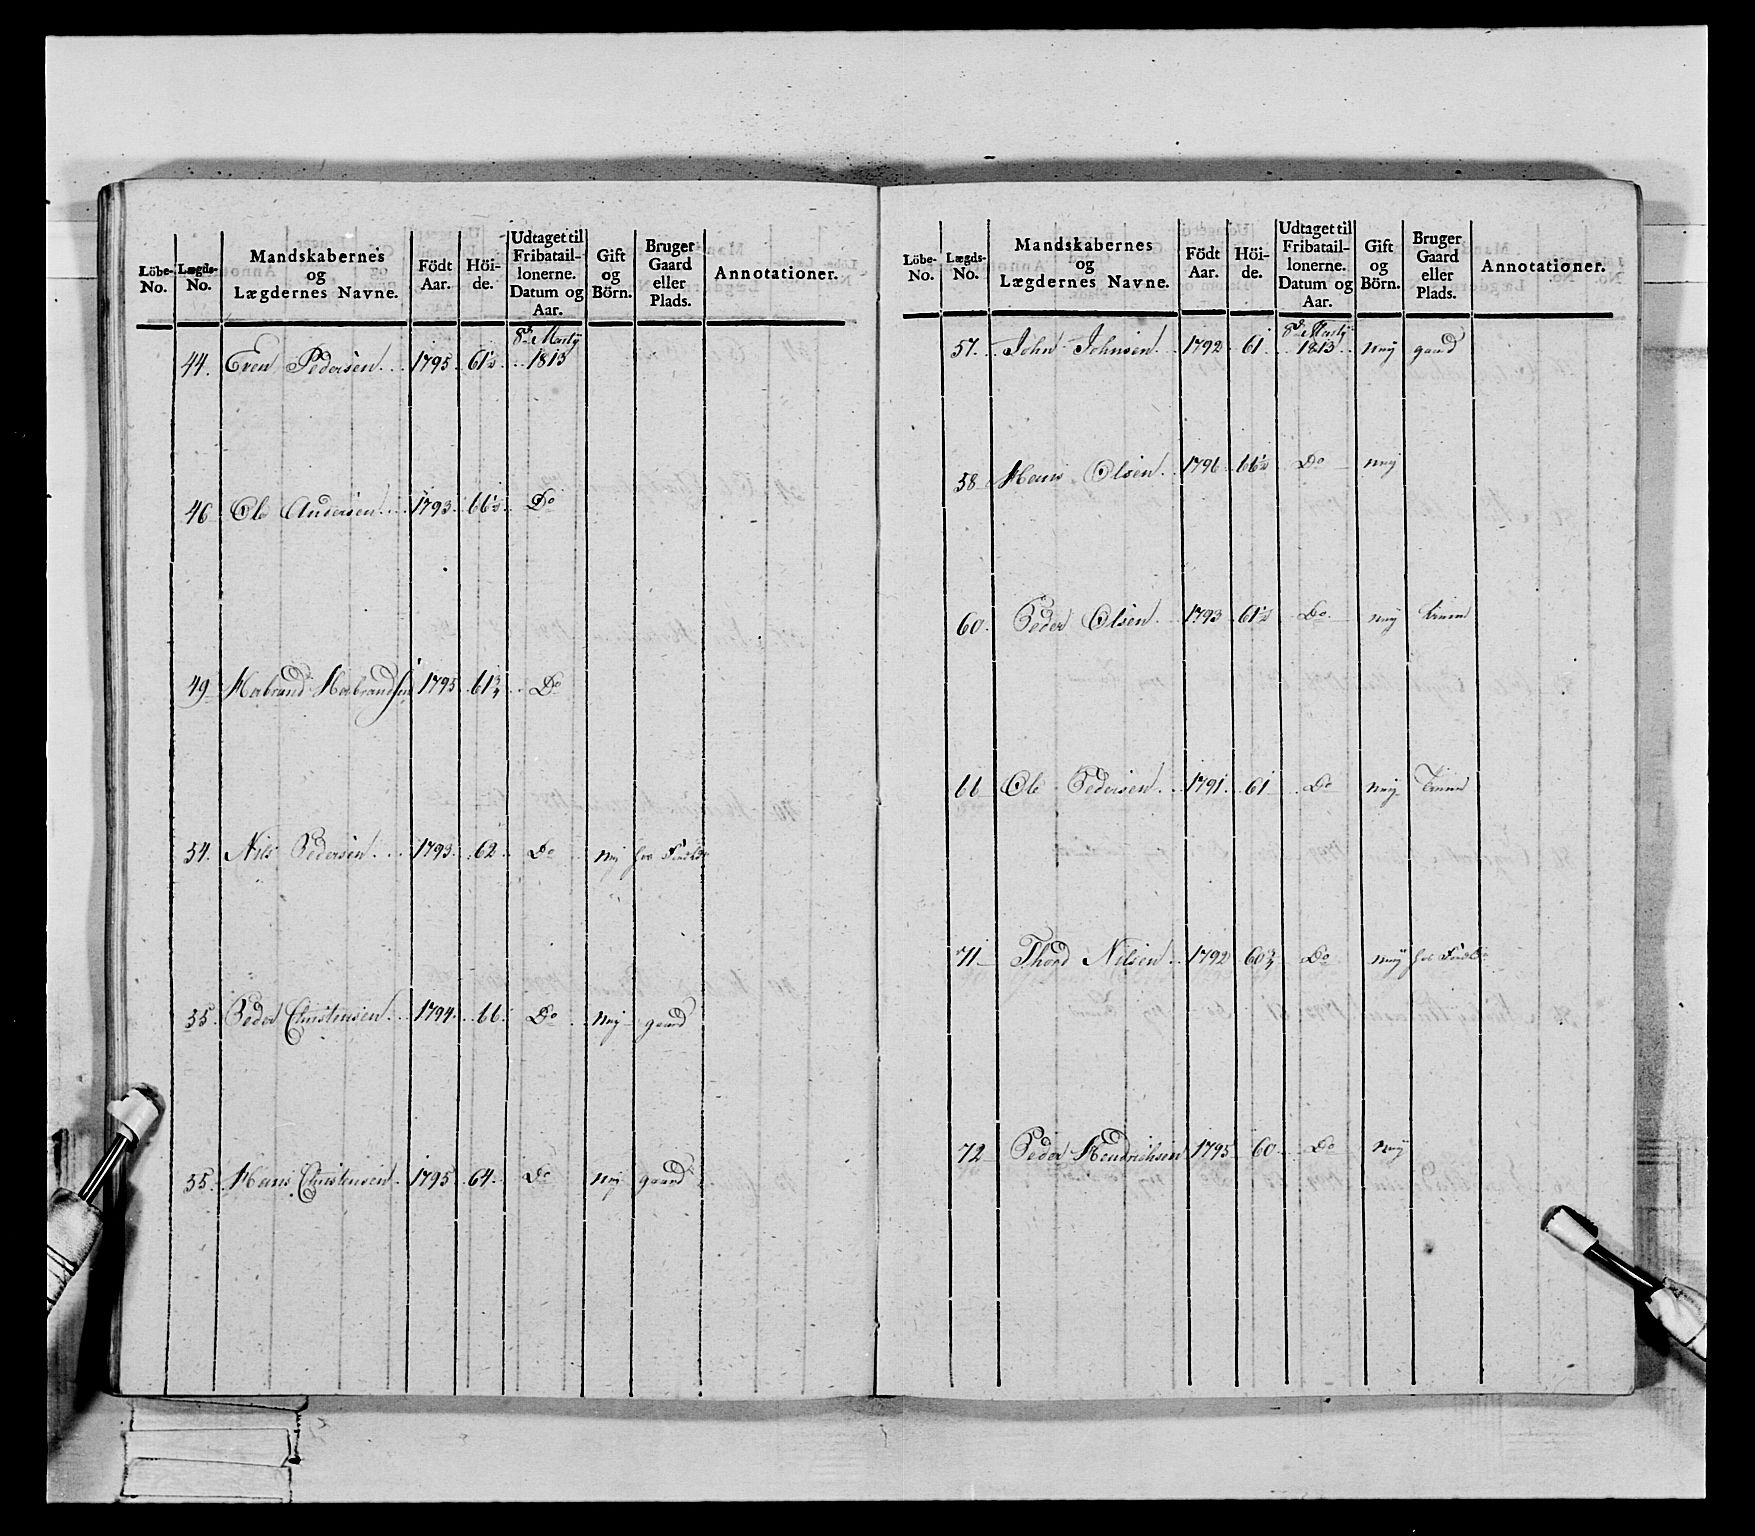 Löbe-No. Lægds-No. Mandskabernes og Lægdernes Navne. Födt Aar. Höi-de. Udtaget til Fribatail-lonerne. Datum og Aar. Gift og Börn. Bruger Gaard eller Plads. Annotationer.
44. Even Pedersen 1795 61½ 8de Martj 1813
46 Ole Andersen 1793 66½ Do
49 Herbrand Herbrandsen 1795 61¾ Do
54. Nils Pedersen 1793 62 Do nej hos
55. Peder Christensen 1794 66 Do nej gaard
55. Hans Christensen 1795 64 Do nej gaard
Löbe-No. Lægds-No. Mandskabernes og Lægdernes Navne. Födt Aar. Höi-de. Udtaget til Fribatail-lonerne. Datum og Aar. Gift og Börn. Bruger Gaard eller Plads. Annotationer.
57. John Johnsen 1792 61 8de Martj 1813 nej gaard
58 Hans Olsen 1796 66½ Do nej
60. Peder Olsen 1793 61½ Do nej
66 Ole Pedersen 1791 61 Do nej
71 Thord Nilsen 1792 60¾ Do nej hos
72 Peder Hendrichsen 1795 60 Do nej